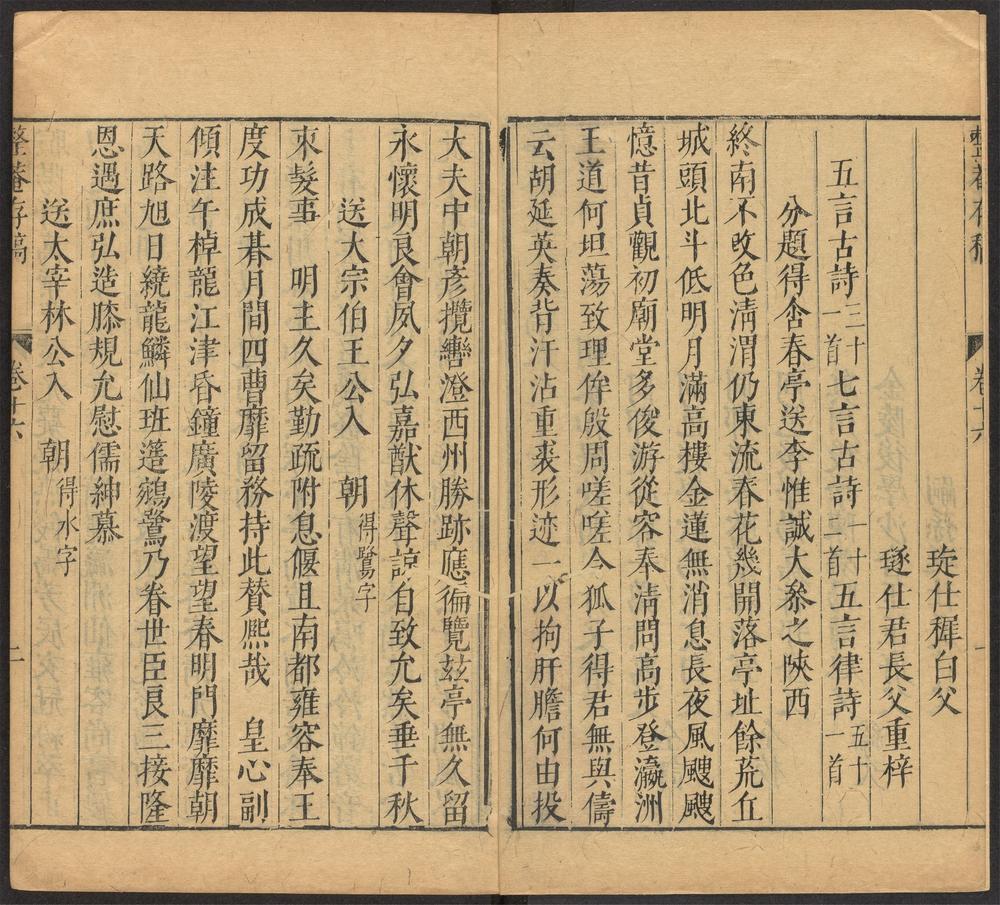 整菴存稿 卷十六 一
琁仕穉白父
璲仕君長父重梓
五言古詩三十一首七言古詩一十二首五言律詩五十一首
分題得含春亭送李惟誠大叅之陝西
終南不攺色淸渭仍東流春花幾開落亭址餘荒丘
城頭北斗低明月滿高樓金蓮無消息長夜風颼颼
憶昔貞觀初廟堂多俊游從容奉淸問高步登瀛洲
王道何坦蕩致理侔殷周嗟嗟令狐子得君無與儔
云胡延英奏背汗沾重裘形迹一以拘肝膽何由投
大夫中朝彦攬轡澄西州勝跡應徧覽玆亭無久留
永懷明良會夙夕弘嘉猷休聲諒自致允矣垂千秋
送大宗伯王公入 朝得鷺字
束髮事 明主久矣勤疏附息偃且南都雍容奉王
度功成朞月間四曹靡留務持此賛熙哉 皇心副
傾注午棹龍江津昏鐘廣陵渡望望春明門靡靡朝
天路旭日繞龍鱗仙班簉鵷鷺乃眷世臣良三接隆
恩遇庶弘造膝規允慰儒紳慕
送太宰林公入 朝得水字
整菴存稿 卷十六 二